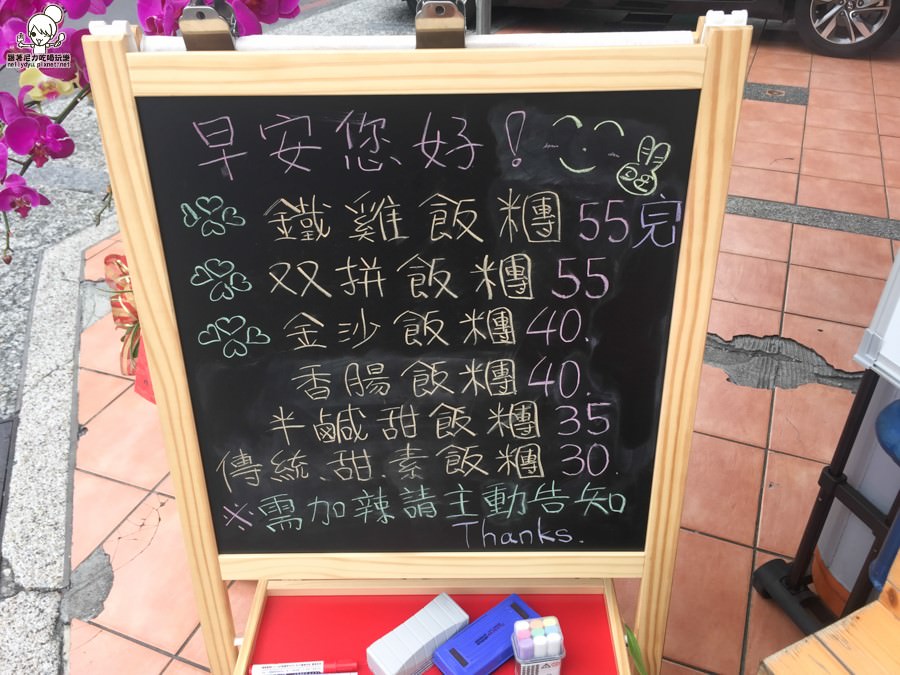 跟著尼力吃喝玩樂
nellydyu.pixnet.net
早安您好!
鐵雞飯糰 55完
双拼飯糰 55
金沙飯糰 40.
香腸飯糰 40.
半鹹甜飯糰 35
傳統.甜.素飯糰 30.
※需加辣請主動告知
Thanks.